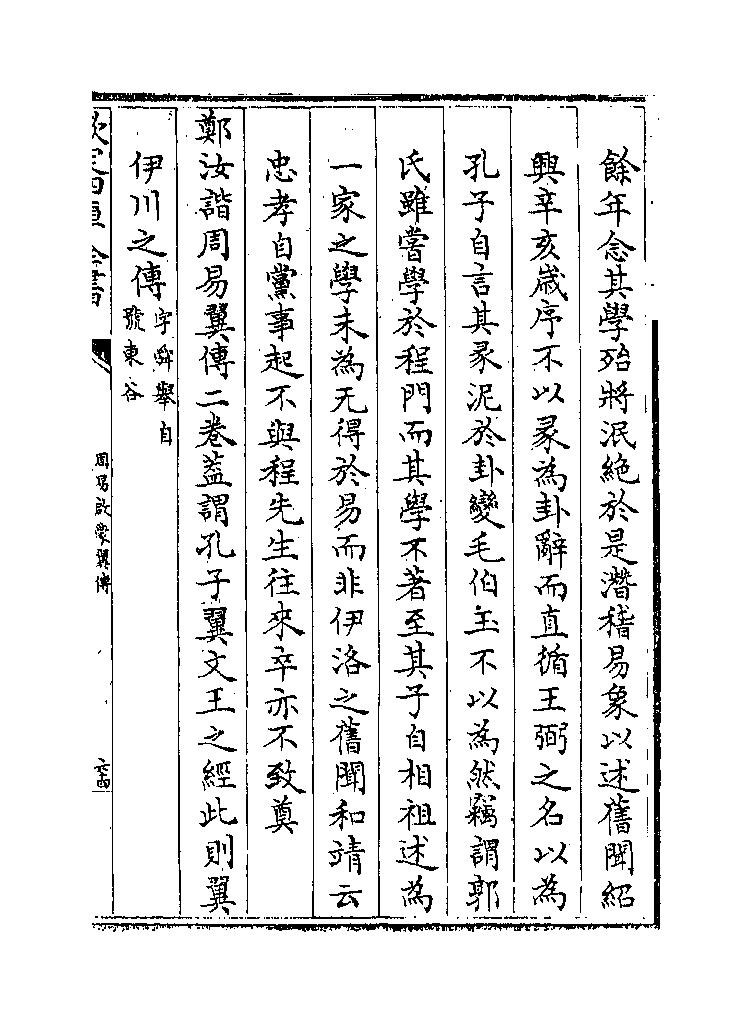 餘年念其學殆將泯絶於是潛稽易象以述舊聞紹
興辛亥歲序不以彖為卦辭而直循王弼之名以為
孔子自言其彖泥於卦變毛伯玉不以為然竊謂郭
氏雖嘗學於程門而其學不著至其子自相祖述為
一家之學未為无得於易而非伊洛之舊聞和靖云
忠孝自黨事起不與程先生往來卒亦不致奠
鄭汝諧周易翼傳二卷蓋謂孔子翼文王之經此則翼
伊川之傳字舜舉自號東谷
欽定四庫全書
周易啟蒙翼傳